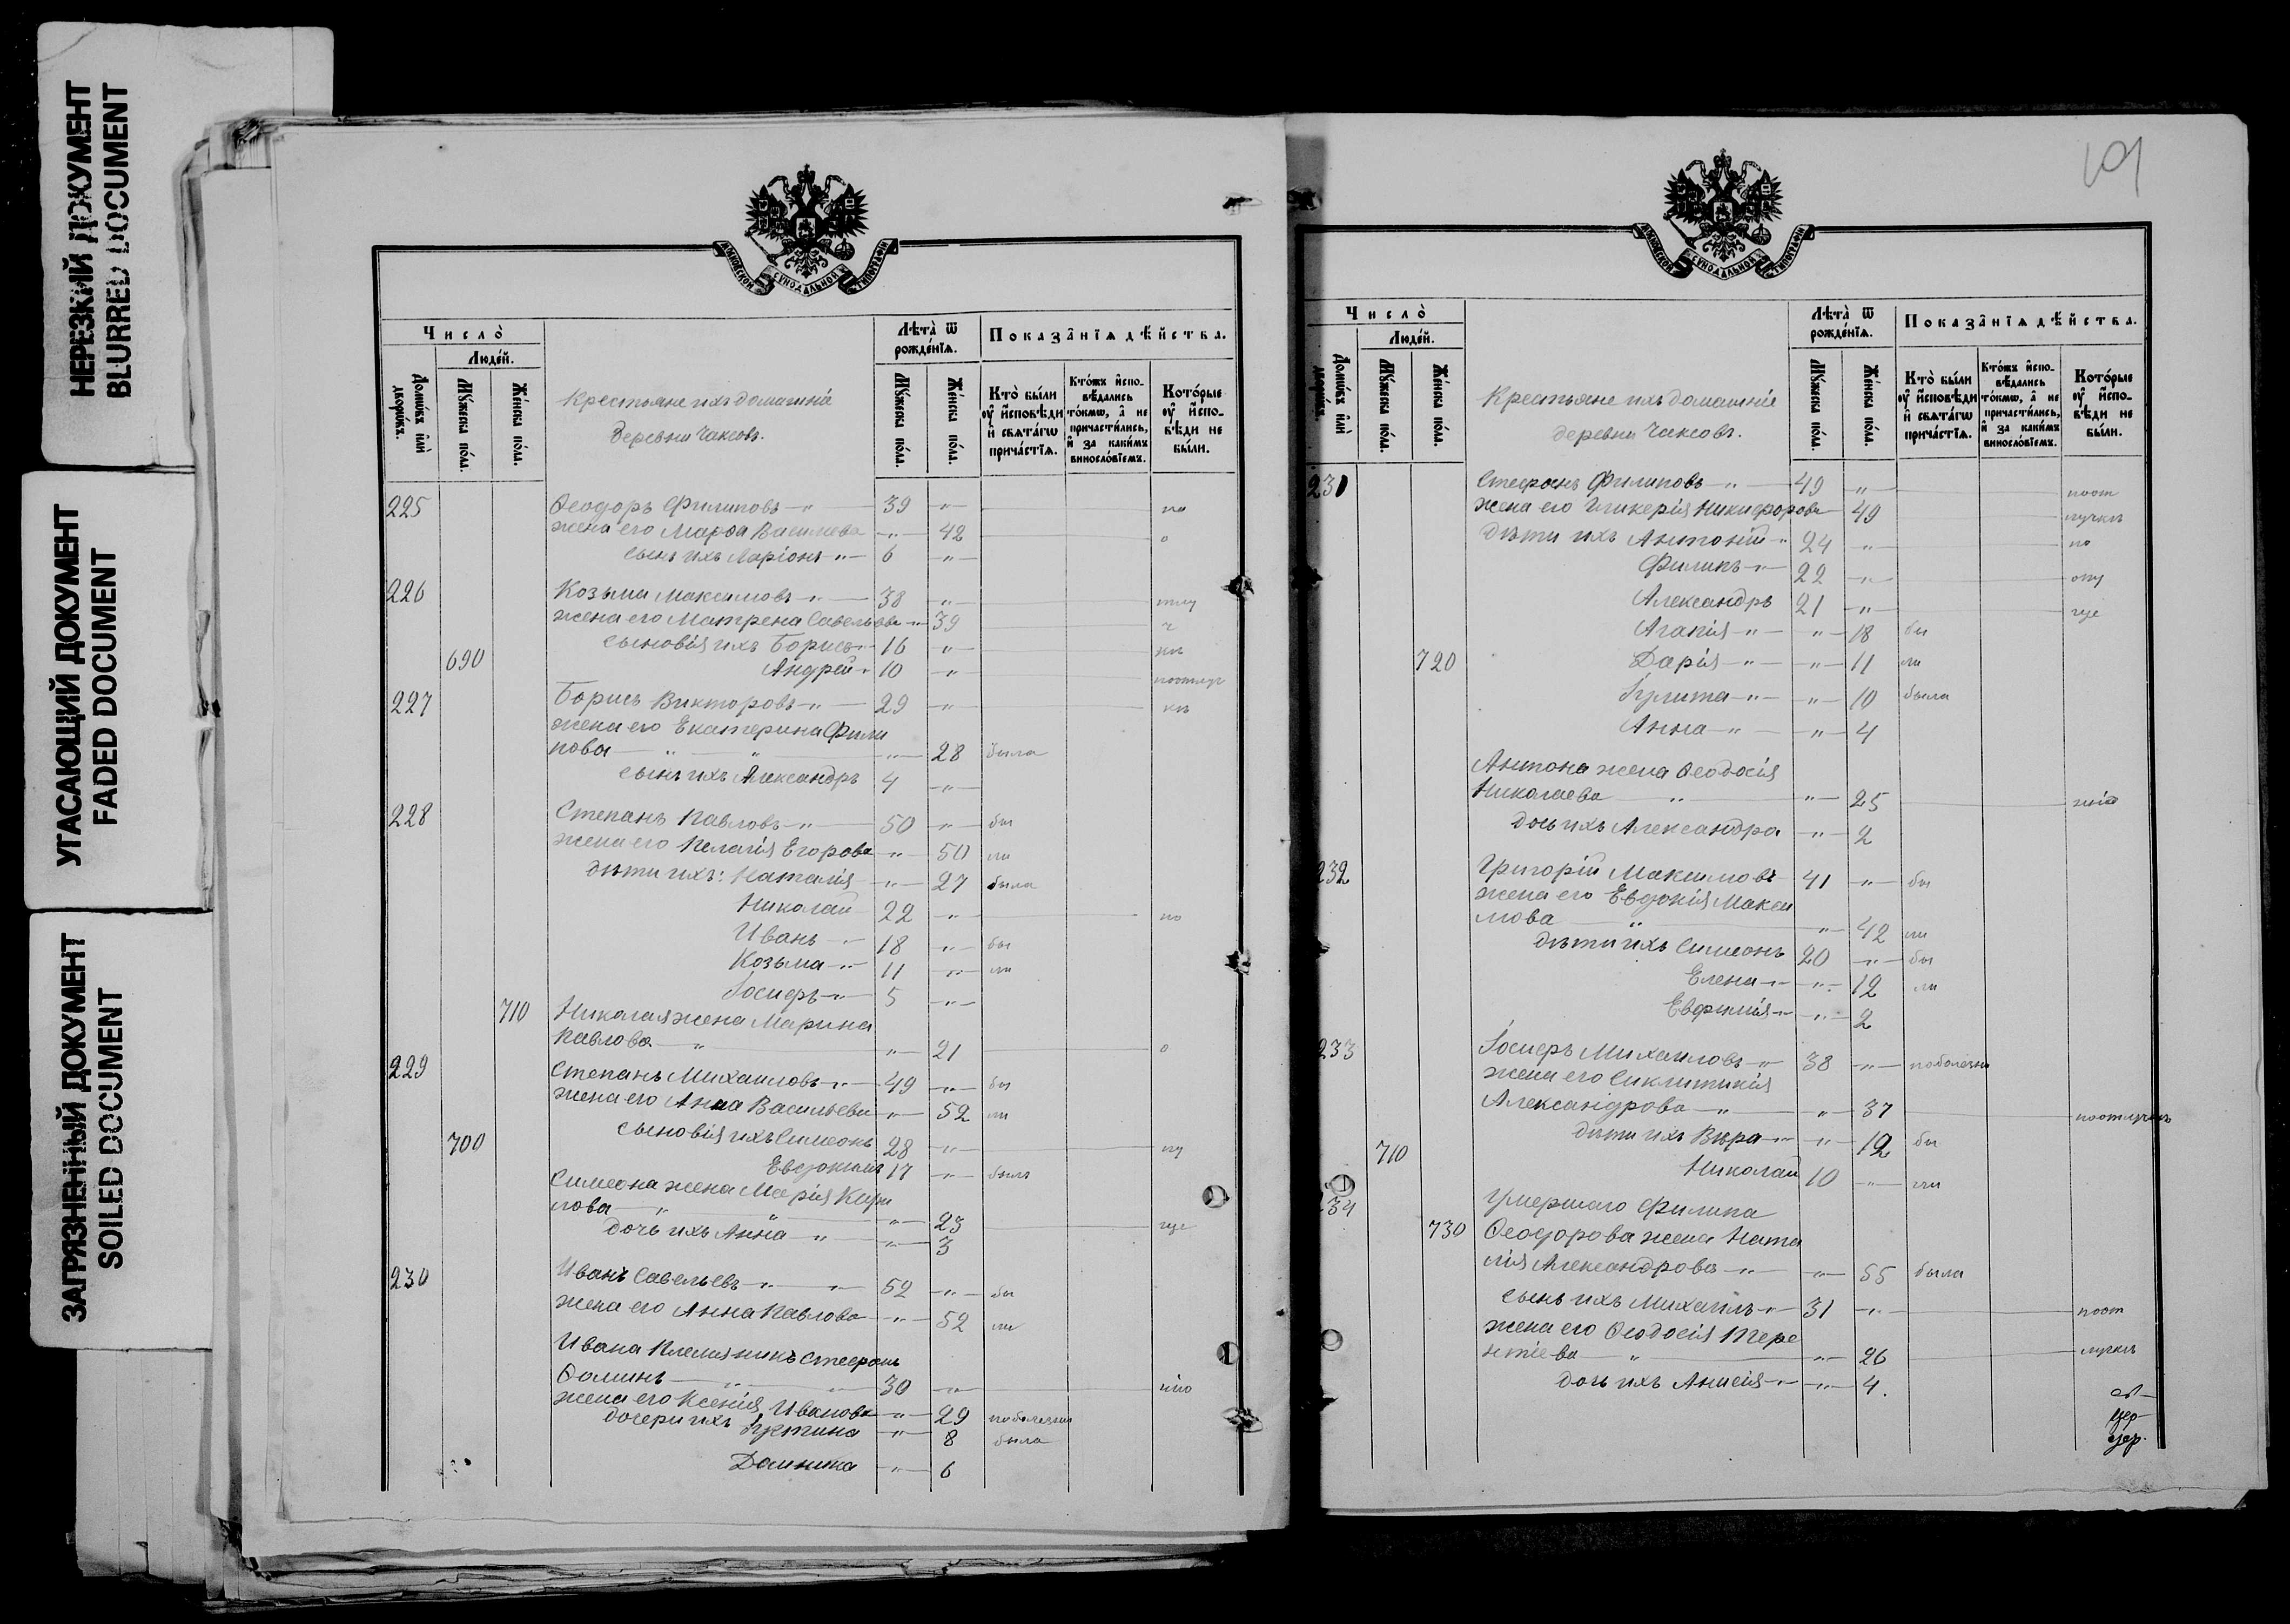 НЕРЕЗКИЙ ДОКУМЕНТ
BLURRED DOCUMENT
УГАСАЮЩИЙ ДОКУМЕНТ
FADED DOCUMENT
ЗАГРЯЗНЕННЫЙ ДОКУМЕНТ
SOILED DOCUMENT
МОСКОВСКОЙ СѴНОДАЛЬНОЙ ТИПОГРАФІИ
Число̀
Люде́й.
Домѡ́въ и҆лѝ дворѡ́въ.
Мꙋ́жеска по́ла.
Же́нска по́ла.
Крестьяне ихъ домашніе
деревни Чаксовъ.
Лѣта̀ ѿ рожде́нїѧ.
Мꙋ́жеска по́ла.
Же́нска по́ла.
Показа̂нїѧ дѣ́йства.
Кто̀ бы́ли ᲂу҆ и҆сповѣ́ди и҆ свѧта́гѡ прича́стїѧ.
Кто́жъ и҆спо-вѣ́дались то́кмѡ, а҆ не причасти́лись, и҆ за каки́мъ виносло́вїемъ.
Кото́рые ᲂу҆ и҆спо-вѣ́ди не бы́ли.
225 Ѳеодоръ Филиповъ -"- 39 -"- по
жена его Марѳа Василиева -"- 42 о
сынъ ихъ Ларіонъ -"- 6 -"-
226 Козьма Максимовъ -"- 38 -"-
жена его Матрена Савельева -"- 39 ч
сыновія ихъ Борисъ -"- 16 -"- къ
690 Андрей -"- 10 -"- поотлуч
227 Борисъ Викторовъ -"- 29 -"- къ
жена его Екатерина Фили
пова " " -"- 28 была
сынъ ихъ Александръ 4 -"-
228 Степанъ Павловъ -"- 50 -"- бы
жена его Пелагія Егорова -"- 50 ли
дѣти ихъ: Наталія -"- 27 была
Николай 22 -"- по
Иванъ -"- 18 -"- бы
Козьма -"- 11 -"- ли
Іосифъ -"- 5 -"-
710 Николая жена Марина
Павлова -"- -"- 21 о
229 Степанъ Михаиловъ -"- 49 -"- бы
жена его Анна Васильева -"- 52 ли
700 сыновія ихъ Симеонъ 28 -"-
Евдокимъ 17 -"- былъ
Симеона жена Марія Кири
лова " " -"- 23 где
дочь ихъ Анна " -"- 3
230 Иванъ Савельевъ -"- -"- 52 -"- бы
жена его Анна Павлова -"- 52 ли
Ивана племянникъ Стефанъ
Ѳоминъ " " 30 -"-
жена его Ксенія Иванова -"- 29 поболезни
дочери ихъ Іустина -"- 8 была
Домника -"- 6
Число̀
Люде́й.
Домѡ́въ и҆лѝ дворѡ́въ.
Мꙋ́жеска по́ла.
Же́нска по́ла.
Крестьяне ихъ домашніе
деревни Чаксовъ.
Лѣта̀ ѿ рожде́нїѧ.
Мꙋ́жеска по́ла.
Же́нска по́ла.
Показа̂нїѧ дѣ́йства.
Кто̀ бы́ли ᲂу҆ и҆сповѣ́ди и҆ свѧта́гѡ прича́стїѧ.
Кто́жъ и҆спо-вѣ́дались то́кмѡ, а҆ не причасти́лись, и҆ за каки́мъ виносло́вїемъ.
Кото́рые ᲂу҆ и҆спо-вѣ́ди не бы́ли.
231 Стефанъ Филиповъ -"- 49 -"- поот
жена его Гликерія Никифорова 49 лучкъ
дѣти ихъ Антоній -"- 24 -"- по
Филипъ -"- 22 -"-
Александръ 21 -"- где
Агапія -"- -"- 18 бы
720 Дарія -"- -"- 11 ли
Іулита -"- -"- 10 была
Анна -"- -"- 4
Антона жена Ѳеодосія
Николаева " -"- 25
дочь ихъ Александра -"- 2
232 Григорій Максимовъ 41 -"- бы
жена его Евдокія Макси
мова " -"- 42 ли
дѣти ихъ Симеонъ 20 -"- бы
Елена -"- -"- 12 ли
Евфимія -"- -"- 2
233 Іосифъ Михаиловъ -"- 38 -"- поболезни
жена его Сиклитикія
Александрова -"- -"- 37 поотлучкъ
дѣти ихъ Вѣра -"- -"- 12 бы
710 Николай 10 -"- ли
234 Умершаго Филипа
730 Ѳеодорова жена Ната
лія Александрова -"- -"- 55 была
сынъ ихъ Михаилъ -"- 31 -"- поот
жена его Ѳеодосія Тере
нтіева " -"- 26 лучкъ
дочь ихъ Анисія -"- -"- 4.